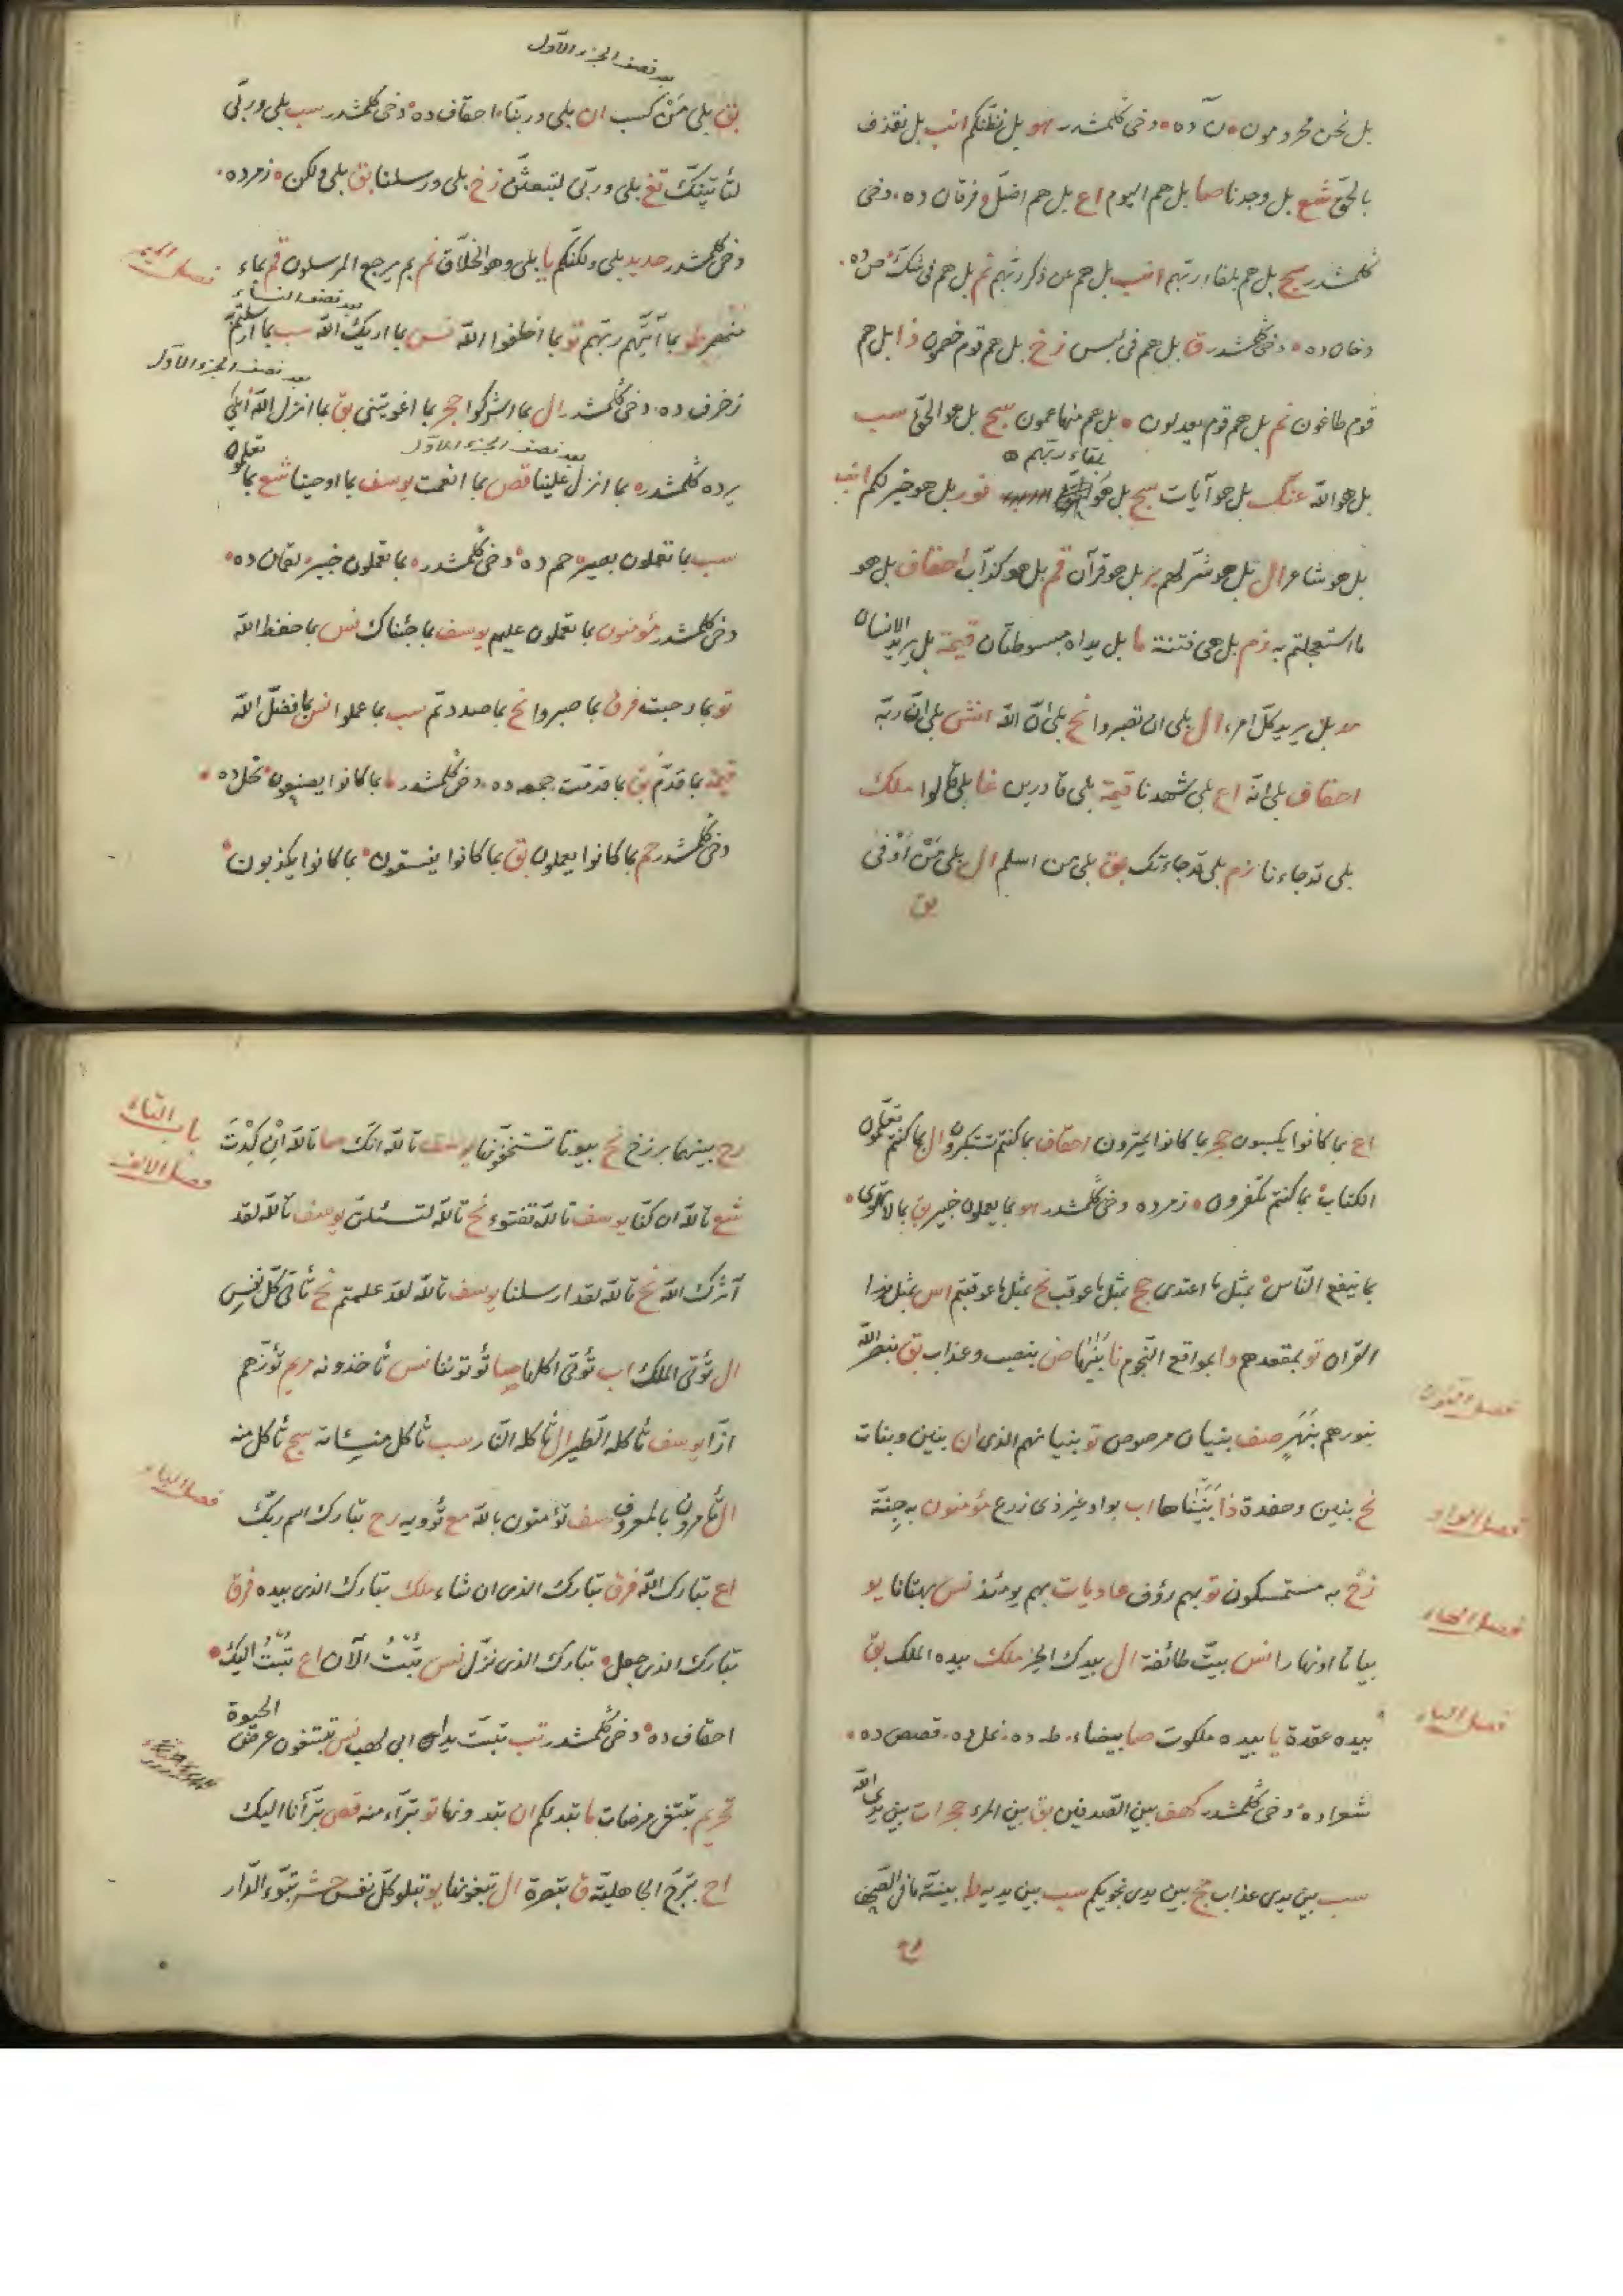 بل نحن محرومون ن ده دخی كلمشدر هو بل نظنكم انب بل نقذف
بالحق شع بل وجدنا صا بل هم اليوم اع بل هم اضل فرقان ده دخی
كلمشدر سج بل هم بلقاء ربهم انب بل هم عن ذكر ربهم نم بل هم فی شك ص ده
دخان ده دخی كلمشدر ق بل هم فی لبس زخ بل هم قوم خصمون ذا بل هم
قوم طاغون نم بل هم قوم يعدلون بل هم منها عمون سج بل هو الحق سب
بلقاء ربهم
بل هو الله عنك بل هو آيات سج بل هو نور بل هو خير لكم انب
بل هو شاعر ال بل هو شر لهم بر بل هو قرآن قم بل هو كذاب احقاف بل هو
ما استعجلتم به زم بل هی فتنة ما بل يداه مبسوطتان قيمة بل يريد الانسان
مد بل يريد كل امرء ال بلی ان تصبروا نح بلی ان الله انش بلی ان ربه
احقاف بلی انه اع بلی شهدنا قيمة بلی قادرين غا بلی قالوا ملك
بلی قد جاءنا زم بلی قد جاءتك بق بلی من اسلم ال بلی من اوفی
بق
بعد نصف الجزء الاول
بق بلی من كسب ان بلی وربنا احقاف ده دخی كلمشدر سب بلی وربی
لتأتينكم تغ بلی وربی لتبعثن زخ بلی ورسلنا بق بلی ولكن زمر ده
دخی كلمشدر حديد بلی ولكنكم يا بلی وهو الخلاق نم بم يرجع المرسلون قم بماء
فصل الميم
بعد نصف النساء
منهمر طو بما آتيهم ربهم تو بما اخلفوا الله نس بما اريك الله سب بما ارسلتم
بعد نصف الجزء الاول
زخرف ده دخی كلمشدر ال بما اشركوا حجر بما اغويتنی بق بما انزل الله
بعد نصف الجزء الاول
يرده كلمشدر بما انزل علينا قص بما انعمت يوسف بما اوحينا شع بما تعملون
سب بما تعملون بصير حم ده دخی كلمشدر بما تعملون خبير لقمان ده
دخی كلمشدر مؤمنون بما تعملون عليم يوسف بما جئناك نس بما حفظ الله
تو بما رحبت فرق بما صبروا نح بما صددتم سب بما عملوا نس بما فضل الله
قيمة بما قدم بق بما قدمت جمعه ده دخی كلمشدر ما بما كانوا يصنعون نحل ده
دخی كلمشدر حم بما كانوا يعملون بق بما كانوا يفسقون بما كانوا يكذبون
اع بما كانوا يكسبون حجر بما كانوا يمترون احقاف بما كنتم تستكبرون ال بما كنتم تعلمون
الكتاب بما كنتم تكفرون زمر ده دخی كلمشدر هو بما يعملون خبير بق بما لا تهوی
بما ينفع الناس بمثل ما اعتدی حج بمثل ما عوقب نح بمثل ما عوقبتم اس بمثل هذا
القران تو بمقعدهم وا بمواقع النجوم نا بنيها ض بنصب وعذاب بق بنصر الله
فصل النون
بنورهم بنهر صف بنيان مرصوص تو بنيانهم الذی ان بنين وبنات
نح بنين وحفدة ذا بنيناها اب بواد غير ذی زرع مؤمنون به جنة
فصل الواو
زخ به مستمسكون تو بهم رؤف عاديات بهم يومئذ نس بهتانا يو
فصل الهاء
بياتا او نهارا نس بيت طائفة ال بيدك الخير ملك بيده الملك بق
فصل الياء
بيده عقدة يا بيده ملكوت صا بيضاء طه ده نمل ده قصص ده
شعرا ده دخی كلمشدر كهف بين الصدفين بق بين المرء حجرات بين يدی الله
سب بين يدی عذاب مج بين يدی نجويكم سب بين يديه طه بينة ما فی الصحف
رح
باب التاء
فصل الالف
رح بينهما برزخ نح بيوتا تستخفونها يوسف تالله انك صا تالله ان كدت
شع تالله ان كنا يوسف تالله تفتوء نح تالله لتسئلن يوسف تالله لقد
آثرك الله نح تالله لقد ارسلنا يوسف تالله لقد علمتم نح تأتی كل نفس
ال تؤتی الملك اب تؤتی اكلها صا تؤتوننا نس تأخذونه مريم تؤزهم
ازا يوسف تأكله الطير ال تأكله النار سب تأكل منسأته سج تأكل منه
فصل الباء
ال تأمرون بالمعروف صف تؤمنون بالله مع تؤويه رح تبارك اسم ربك
اع تبارك الله فرق تبارك الذی ان شاء ملك تبارك الذی بيده فرق
تبارك الذی جعل تبارك الذی نزل نس تبت الآن اع تبت اليك
احقاف ده دخی كلمشدر تب تبت يدا ابی لهب نس تبتغون عرض الحيوة
تحريم تبتغی مرضات ما تبد لكم ان تبدونها تو تبرأ منه قص تبرأنا اليك
اح تبرج الجاهلية ق تبصرة ال تبغونها يو تبلو كل نفس حشر تبوؤ الدار